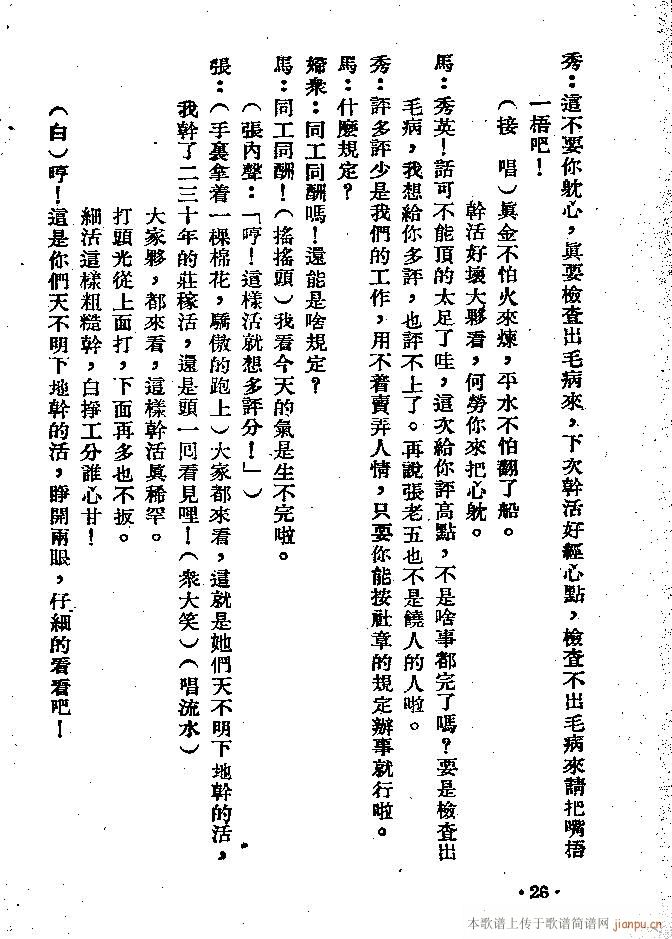 秀：這不要你躭心，眞要檢查出毛病來，下次幹活好經心點，檢查不出毛病來請把嘴捂
一捂吧！
（接　唱）眞金不怕火來煉，平水不怕翻了船。
幹活好壞大夥看，何勞你來把心躭。
馬：秀英！話可不能頂的太足了哇，這次給你評高點，不是啥事都完了嗎？要是檢查出
毛病，我想給你多評，也評不上了。再說張老五也不是饒人的人啦。
秀：評多評少是我們的工作，用不着賣弄人情，只要你能按社章的規定辦事就行啦。
馬：什麼規定？
婦衆：同工同酬嗎！還能是啥規定？
馬：同工同酬！（搖搖頭）我看今天的氣是生不完啦。
（張內聲：「哼！這樣活就想多評分！」）
張：（手裏拿着一棵棉花，驕傲的跑上）大家都來看，這就是她們天不明下地幹的活，
我幹了二三十年的莊稼活，還是頭一囘看見哩！（衆大笑）（唱流水）
大家夥，都來看，這樣幹活眞稀罕。
打頭光從上面打，下面再多也不扳。
細活這樣粗糙幹，白掙工分誰心甘！
（白）哼！這是你們天不明下地幹的活，睜開兩眼，仔細的看看吧！
·26·
本歌谱上传于歌谱简谱网
jianpu.cn